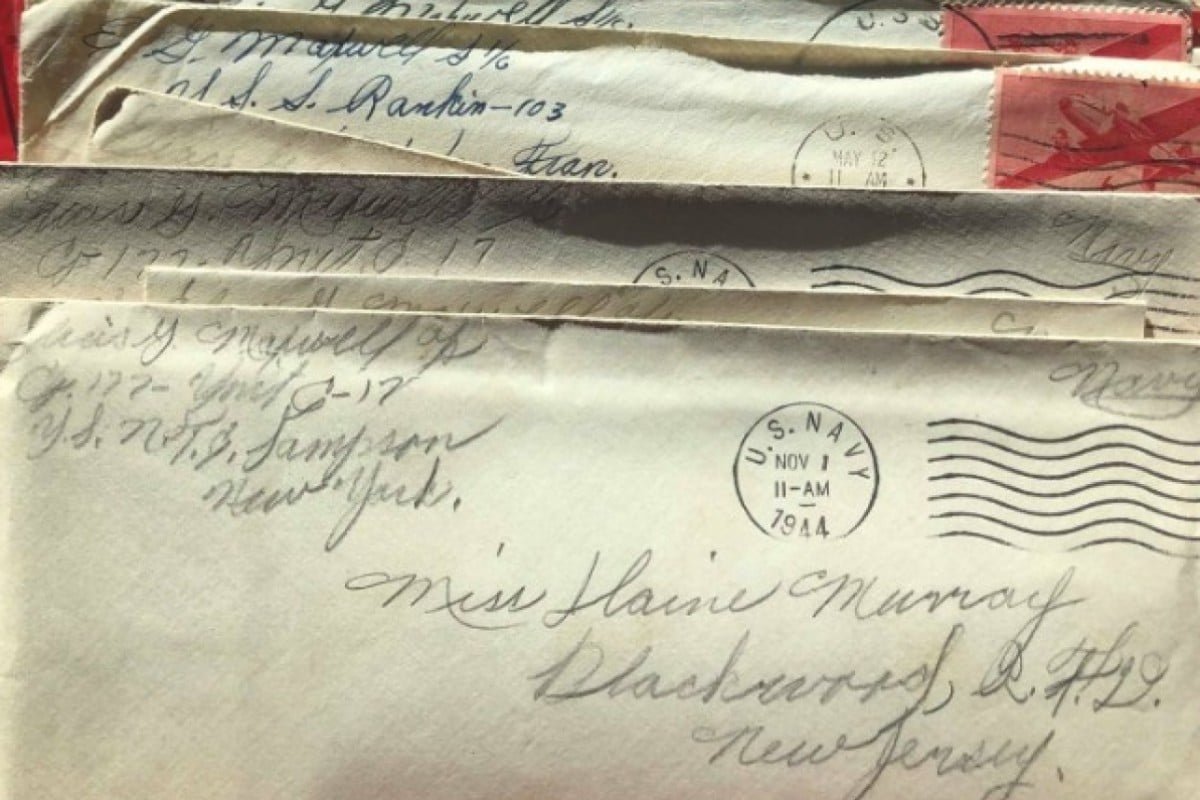 G. Maxwell S1/c.
U.S.
E. G. Maxwell S 1/c
U.S.S. Rankin-103
Fran.
U. S.
MAY 12
11 AM
G. Maxwell
Co. 177- Unit C-17
Navy
S. NA
G. Maxwell A/S
Co. 177- Unit C-17
U.S. N.T.S. Sampson
New York.
Navy
U.S. NAVY
NOV 1
11-AM
1944
Miss Elaine Murray
Blackwood, R.F.D.
New Jersey.